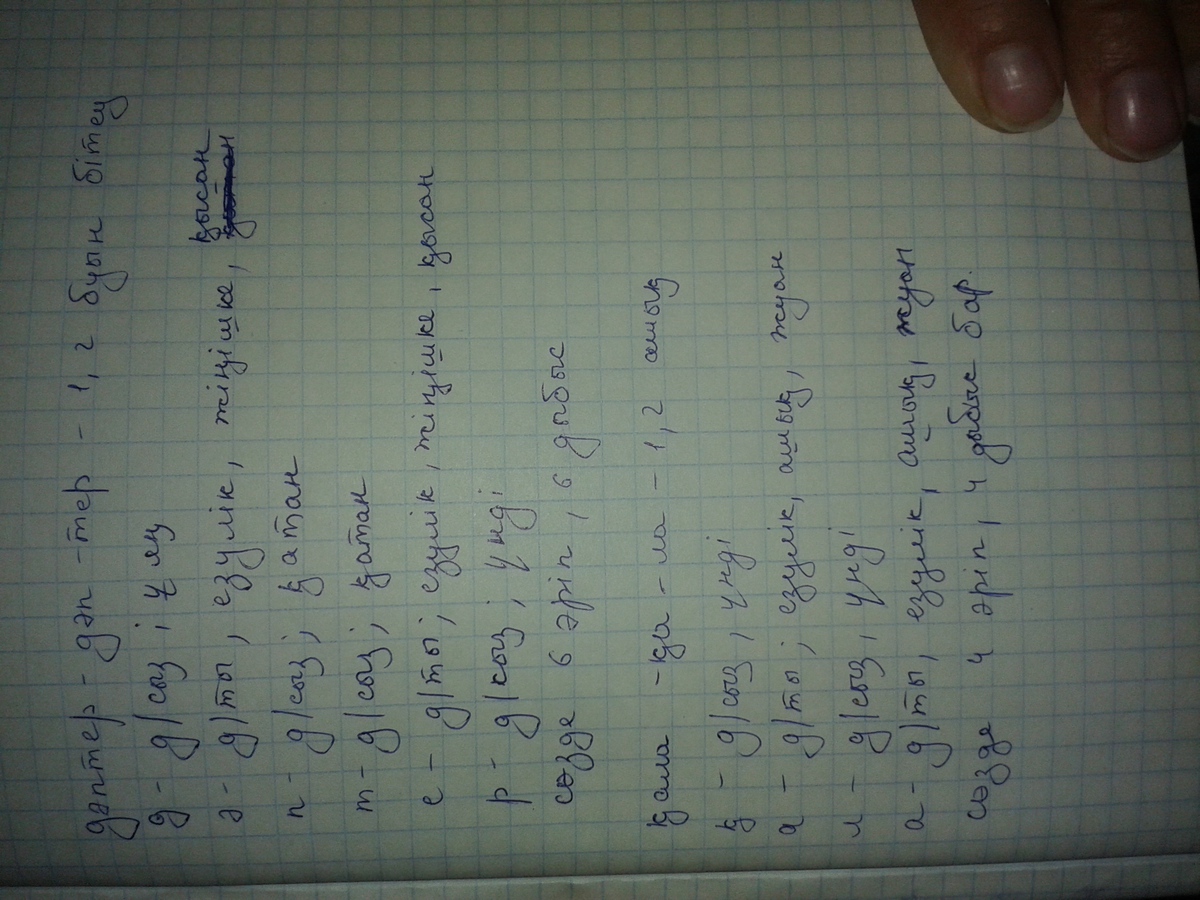 дәптер - дәп - тер - 1, 2 буын бітеу
д - д/сыз; ұяң
ә - д/ты, езулік, жіңішке, қысаң
п - д/сыз; қатаң
т - д/сыз; қатаң
е - д/ты; езулік, жіңішке, қысаң
р - д/сыз; үнді
сөзде 6 әріп, 6 дыбыс
қала - қа - ла - 1, 2 ашық
қ - д/сыз, үнді
а - д/ты; езулік, ашық, жуан
л - д/сыз, үнді
а - д/ты, езулік, ашық, жуан
сөзде 4 әріп, 4 дыбыс бар.